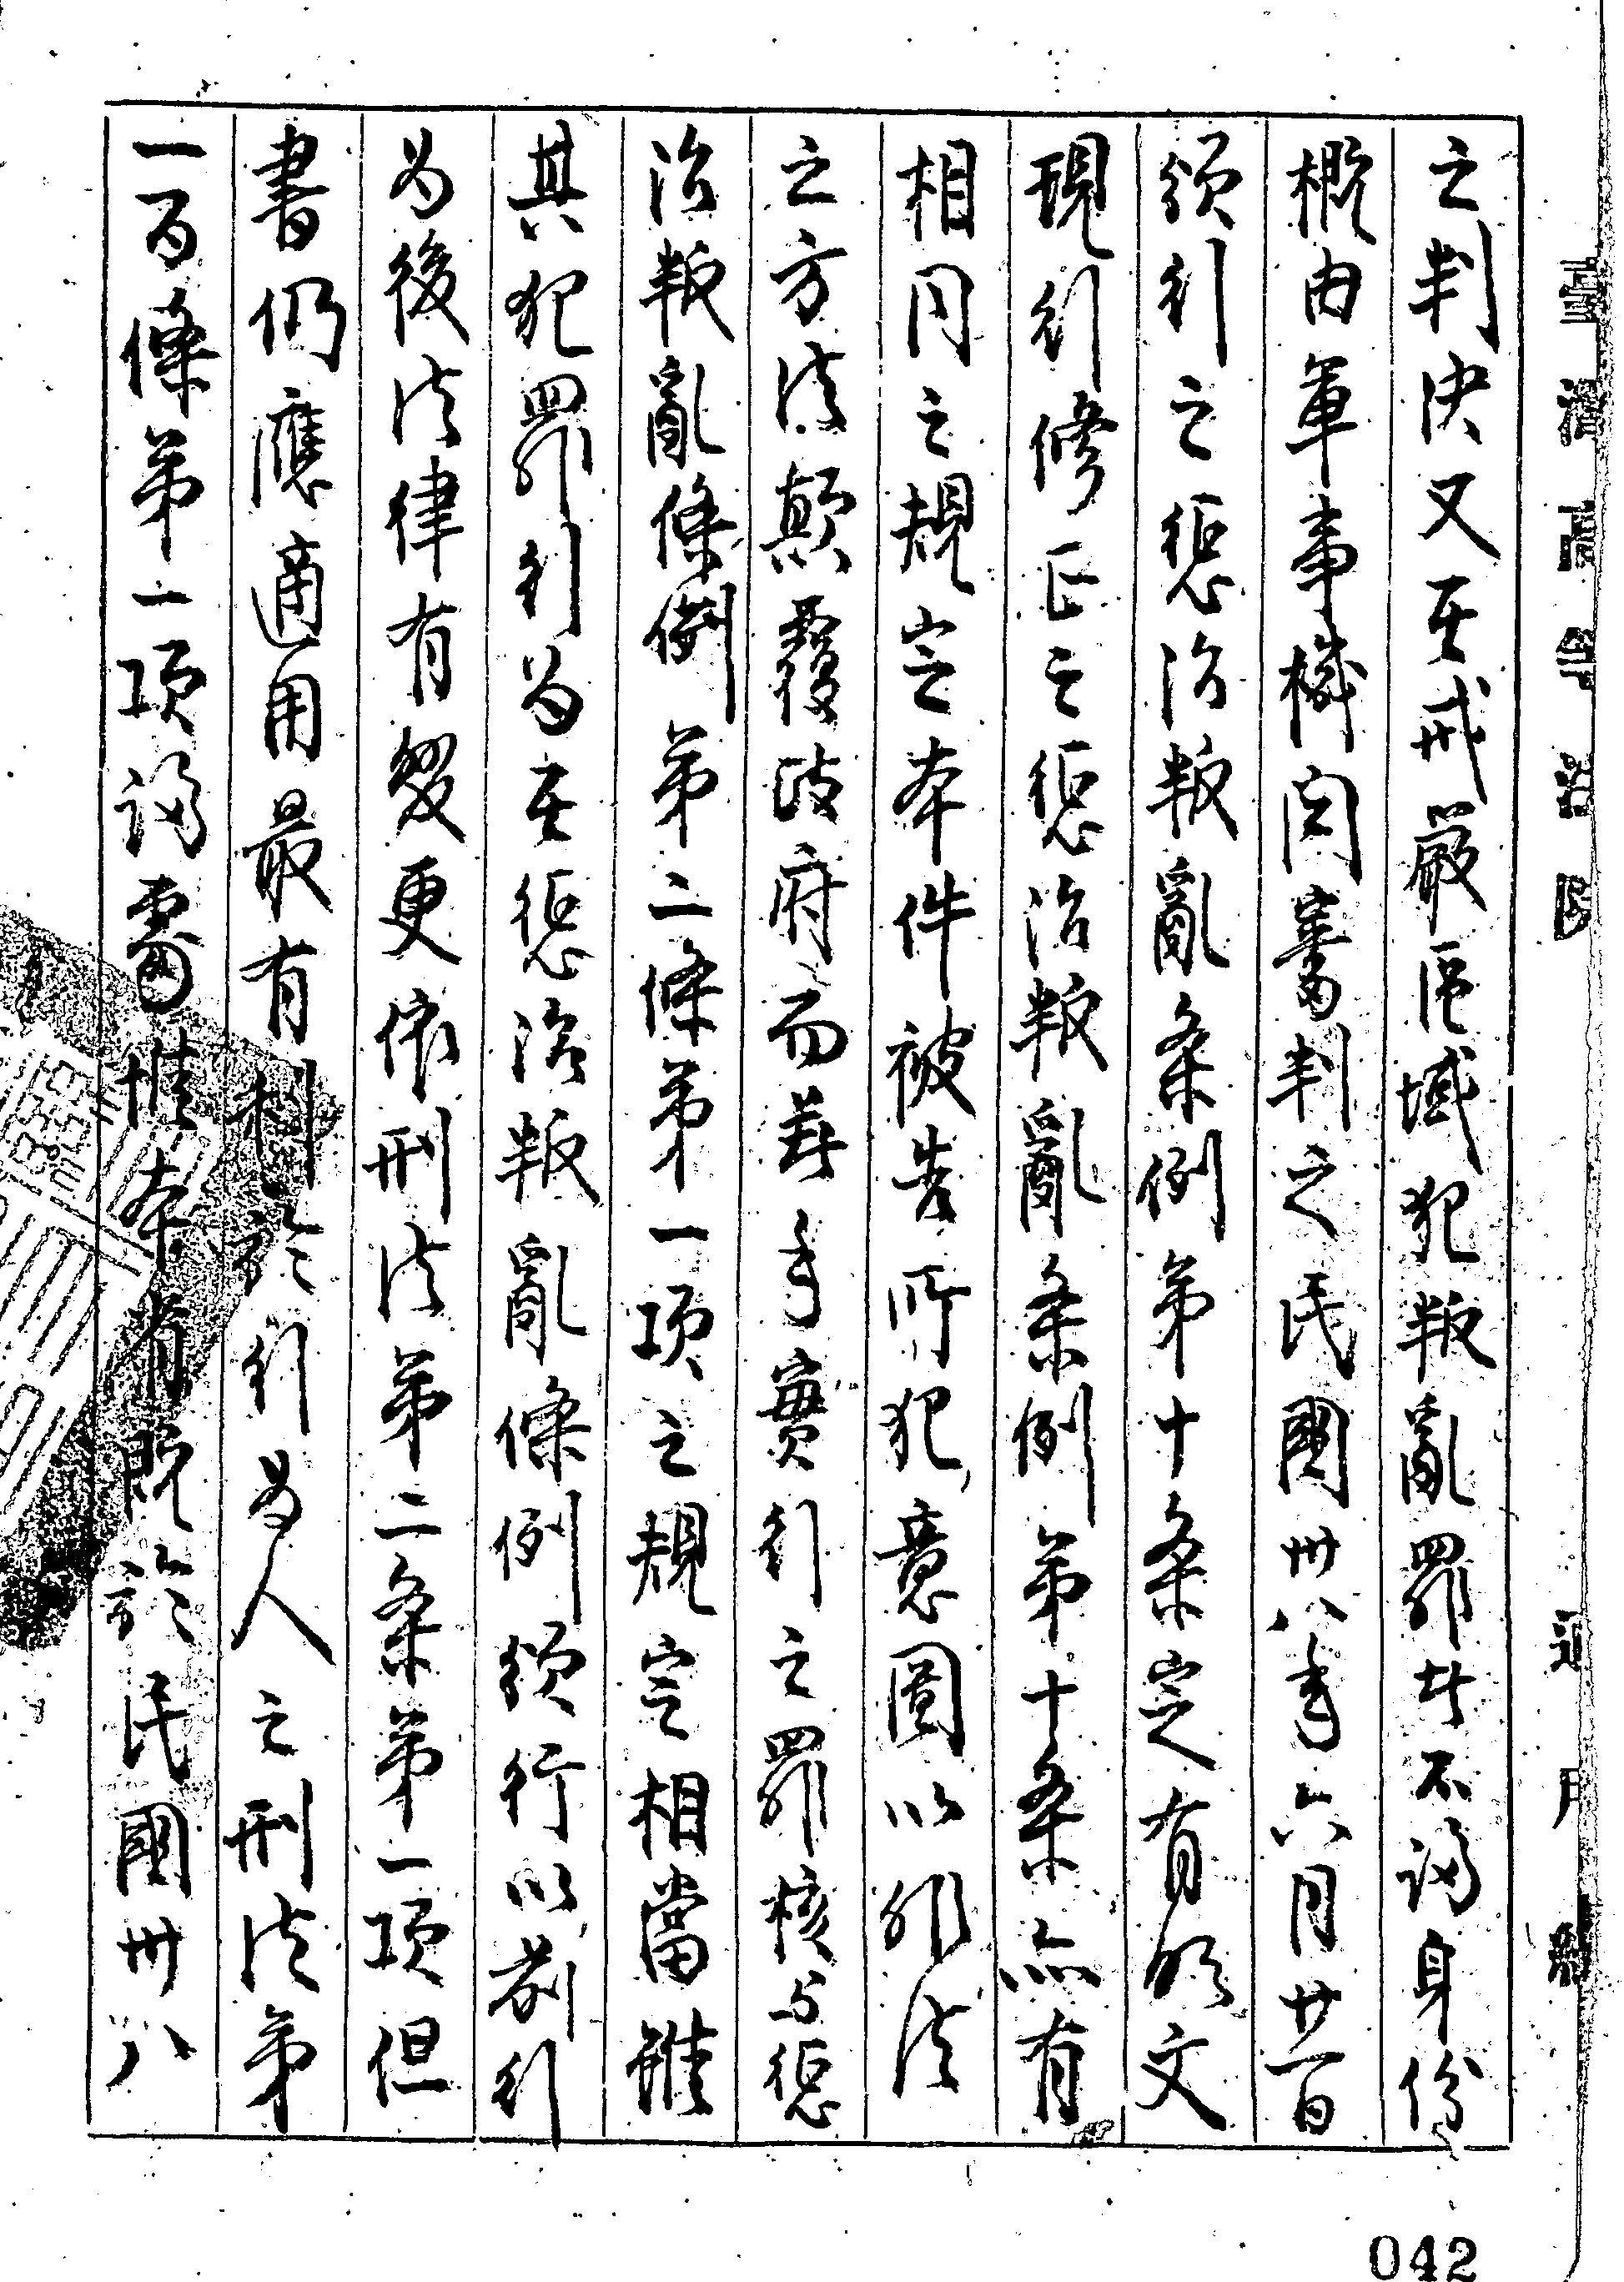 之判決又在戒嚴區域犯叛亂罪者不論身份
概由軍事機關審判之民國卅八年六月廿一日
頒行之懲治叛亂条例第十条定有明文
現行修正之懲治叛亂条例第十条亦有
相同之規定本件被告所犯意圖以非法
之方法顛覆政府而著手實行之罪核与懲
治叛亂條例第二條第一項之規定相當雖
其犯罪行為在懲治叛亂條例頒行以前行
为後法律有變更依刑法第二条第一項但
書仍應適用最有利於行为人之刑法第
一百條第一項論處惟本省既於民國卅八
臺灣高等法院
通用紙
042